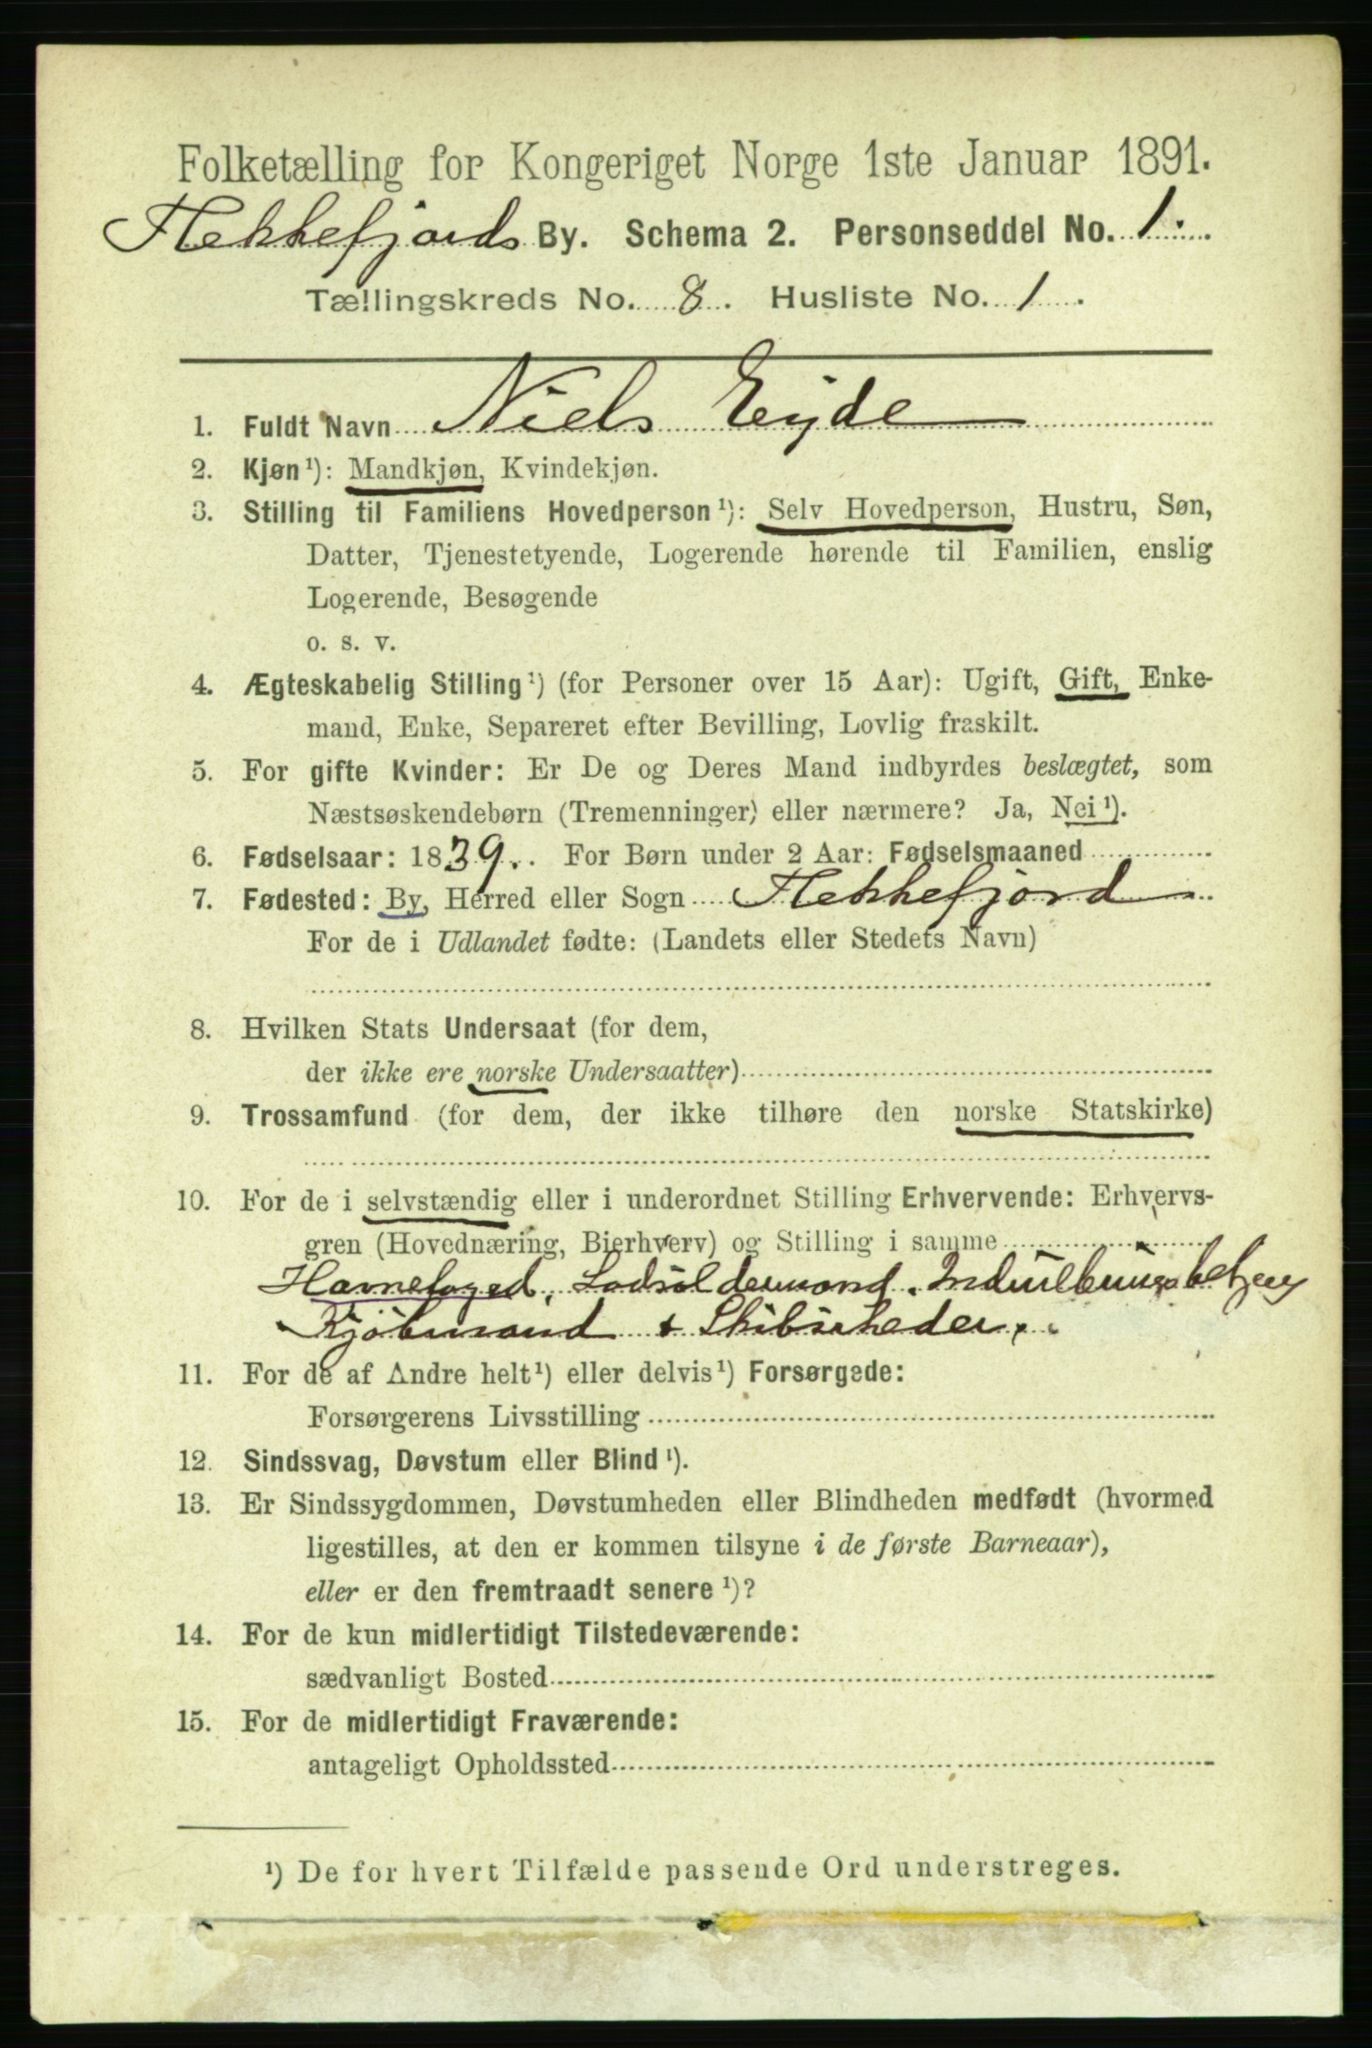 Folketælling for Kongeriget Norge 1ste Januar 1891.
Flekkefjords By. Schema 2. Personseddel No. 1.
Tællingskreds No. 8. Husliste No. 1.
1. Fuldt Navn Niels Eyde
2. Kjøn¹): Mandkjøn, Kvindekjøn.
3. Stilling til Familiens Hovedperson¹): Selv Hovedperson, Hustru, Søn,
Datter, Tjenestetyende, Logerende hørende til Familien, enslig
Logerende, Besøgende
o. s. v.
4. Ægteskabelig Stilling¹) (for Personer over 15 Aar): Ugift, Gift, Enke-
mand, Enke, Separeret efter Bevilling, Lovlig fraskilt.
5. For gifte Kvinder: Er De og Deres Mand indbyrdes beslægtet, som
Næstsøskendebørn (Tremenninger) eller nærmere? Ja, Nei¹).
6. Fødselsaar: 1839. For Børn under 2 Aar: Fødselsmaaned
7. Fødested: By, Herred eller Sogn Flekkefjord
For de i Udlandet fødte: (Landets eller Stedets Navn)
8. Hvilken Stats Undersaat (for dem,
der ikke ere norske Undersaatter)
9. Trossamfund (for dem, der ikke tilhøre den norske Statskirke)
10. For de i selvstændig eller i underordnet Stilling Erhvervende: Erhvervs-
gren (Hovednæring, Bierhverv) og Stilling i samme
Havnefoged, Lodsoldermand.
Kjøbmand & Skibsrheder.
11. For de af Andre helt¹) eller delvis¹) Forsørgede:
Forsørgerens Livsstilling
12. Sindssvag, Døvstum eller Blind¹).
13. Er Sindssygdommen, Døvstumheden eller Blindheden medfødt (hvormed
ligestilles, at den er kommen tilsyne i de første Barneaar),
eller er den fremtraadt senere¹)?
14. For de kun midlertidigt Tilstedeværende:
sædvanligt Bosted
15. For de midlertidigt Fraværende:
antageligt Opholdssted
¹) De for hvert Tilfælde passende Ord understreges.